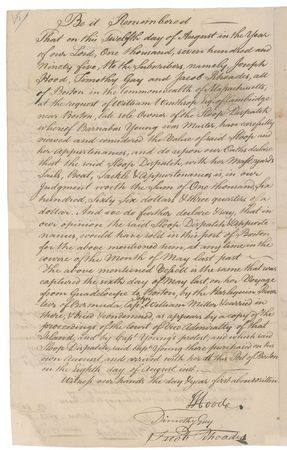 Be it Remembered
That on the Twelfth day of August in the Year
of our Lord, One thousand, seven hundred and
Ninety five, We the Subscribers, namely, Joseph
Hood, Timothy Gay and Jacob Rhoades, all
of Boston in the Commonwealth of Massachusetts,
at the request of William Winthrop Esq of Cambridge
near Boston, late sole Owner of the Sloop Dispatch
whereof Barnabas Young was Master, have carefully
viewed and considered the Value of said Sloop and
her appurtenances, and do upon our Oaths declare
that the said Sloop Dispatch, with her Mast, yards
Sails, Boat, Tackle & Appurtenances is, in our
Judgment worth the Sum of One thousand Six
hundred, Sixty Six dollars & three quarters of a
dollar. And we do further declare & say, that in
our opinion the said Sloop Dispatch & Appurte-
nances, would have sold in this port of Boston
for the above mentioned sum, at any time in the
course of the Month of May last past
The above mentioned Vessell is the same that was
captured the sixth day of May last on her Voyage
from Guadeloupe to Boston, by the
of Bermuda, Capt and carried in
there, tried & condemned, as appears by a copy of the
proceedings of the Court of Vice Admiralty of that
Island, and by Capt Young's protest, and which said
Sloop Dispatch, said Capt Young there purchased on his
own Account, and arrived with her at this Port of Boston
on the eighth day of August
Witness our hands the day & year first above written
J Hood
Timothy Gay
Jacob Rhoades